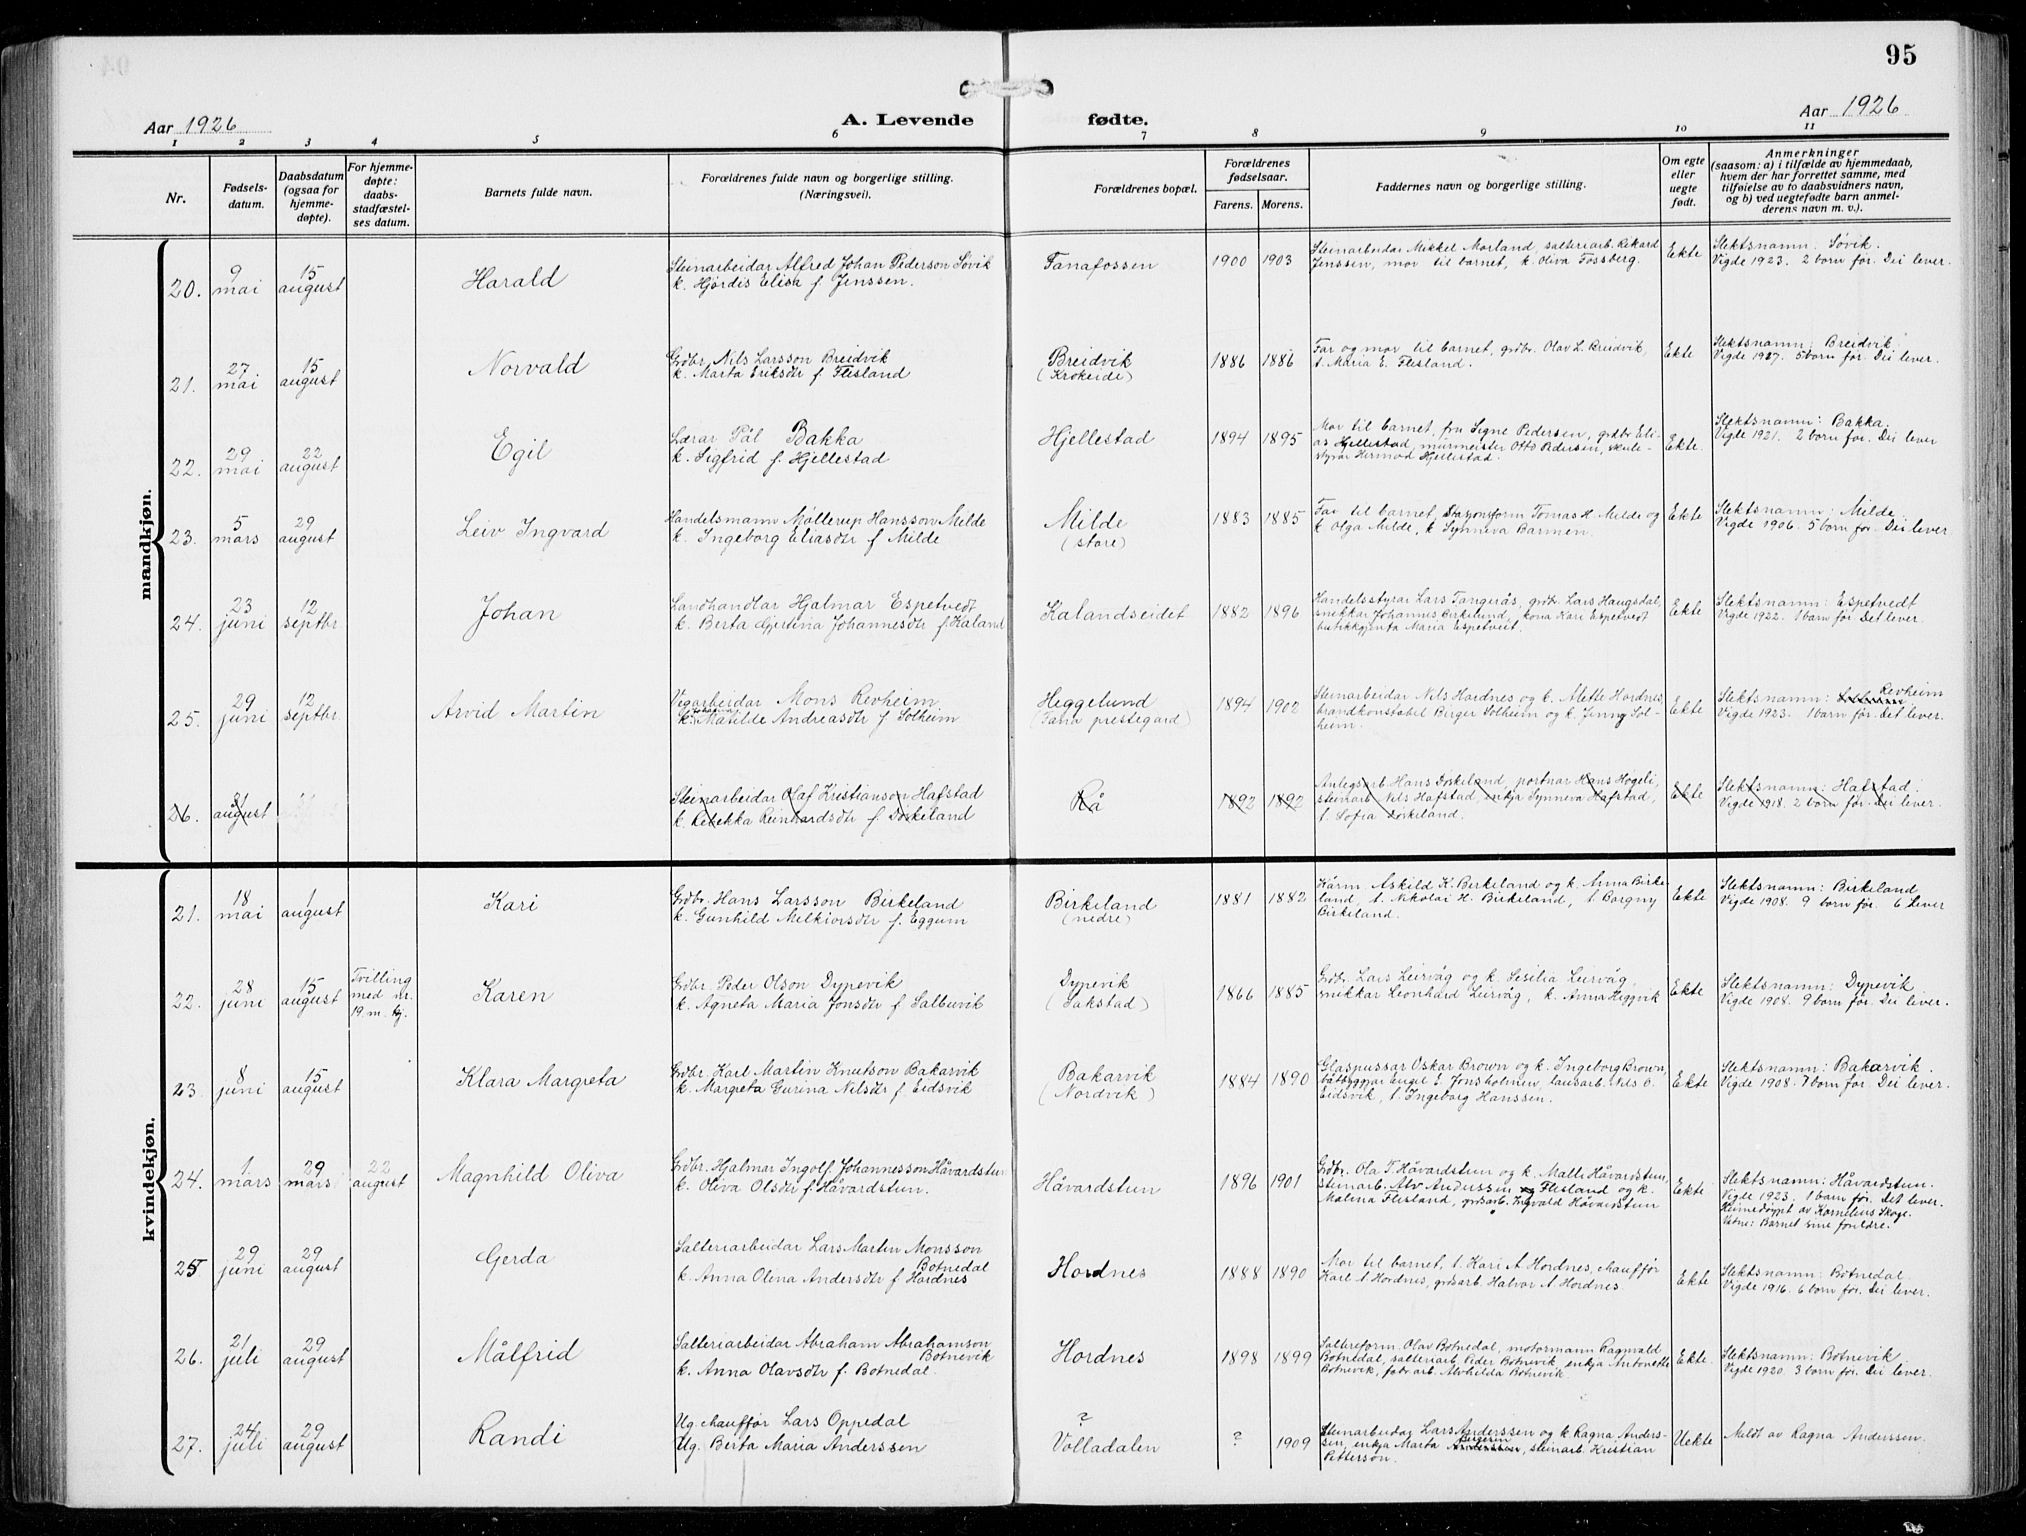 95
Aar 1926
A. Levende fødte.
Aar 1926
1 2 3 4 5 6 7 8 9 10 11
Nr.
Fødsels-
datum.
Daabsdatum
(ogsaa for
hjemme-
døpte).
For hjemme-
døpte:
daabs-
stadfæstel-
ses datum.
Barnets fulde navn.
Forældrenes fulde navn og borgerlige stilling.
(Næringsvei).
Forældrenes bopæl.
Forældrenes
fødselsaar.
Farens. Morens.
Faddernes navn og borgerlige stilling.
Om egte
eller
uegte
født.
Anmerkninger
(saasom: a) i tilfælde av hjemmedaab,
hvem der har forrettet samme, med
tilføielse av to daabsvidners navn,
og b) ved uegtefødte barn anmel-
derens navn m. v.).
mandkjøn.
20.
9
mai
15
august
Harald
Steinarbeidar Alfred Johan Pederson Søvik
k. Hjørdis Elisa f. Jenssen.
Fanafossen
1900 1903
Steinarbeidar Mikkel Morland, salteriarb. Rikard
Jenssen, mor til barnet, k. Oliva Fossberg.
Ekte
Slektsnamn: Søvik.
Vigde 1923. 2 born før. Dei lever.
21.
27
mai
15
august
Norvald
Grdbr. Nils Larsson Breidvik
k. Marta Eriksdtr f. Flesland
Breidvik
(Krokeide)
1886 1886
Far og mor til barnet, grdbr. Olav L. Breidvik,
t. Maria E. Flesland.
Ekte
Slektsnamn: Breidvik.
Vigde 1927. 5 born før. Dei lever.
22.
29
mai
22
august
Egil
Lærar Pål Bakka
k. Sigfrid f. Hjellestad
Hjellestad
1894 1895
Mor til barnet, fru Signe Pedersen, grdbr. Eli-
as Hjellestad, murmeister Otto Pedersen, skule-
styrar Hermod Hjellestad.
Ekte.
Slektsnamn: Bakka.
Vigde 1921. 2 born før. Dei lever
23.
5
mars
29
august
Leiv Ingvard
Handelsmann Møllerup Hansson Milde
k. Ingeborg Eliasdtr f. Milde
Milde
(store)
1883 1885
Far til barnet, Stasjonsform Tomas H. Milde og
k. Olga Milde, k. Synneva Barmen.
Ekte
Slektsnamn: Milde.
Vigde 1906. 5 born før. Dei lever
24.
23
juni
12
septbr.
Johan
Landhandlar Hjalmar Espetvedt
k. Berta Gjertina Johannesdtr f. Kaland
Kalandseidet
1882 1896
Handelsstyrar Lars Tangerås, grdbr. Lars Haugsdal,
snekkar Johannes Birkelund, kona Kari Espetvedt
butikkgjenta Maria Espetveit.
Ekte
Slektsnamn: Espetvedt
Vigde 1922. 1 born før. Det lever.
25.
29
juni
12
septbr.
Arvid Martin
Vegarbeidar Mons Revheim
k. Johanna Matilde Andreasdtr f. Solheim
Heggelund
(Fana prestegard)
1894 1902
Steinarbeidar Nils Hordnes og k. Alette Hordnes,
brandkonstabel Birger Solheim og k. Jenny Sol-
heim.
Ekte
Slektsnamn: Solheim Revheim
Vigde 1923. 1 born før. Det lever.
26.
21
august
Steinarbeidar Olaf Kristianson Hafstad
k. Rebekka Reinhardsdtr f. Døskeland
Rå
1892 1892
Anlegsarb. Hans Døskeland, portnar Hans Høgeli,
steinarb. Nils Hafstad, enkja Synneva Hafstad,
t. Sofia Døskeland.
Ekte
Slektsnamn: Hafstad.
Vigde 1918. 2 born før. Dei lever.
kvindekjøn.
21.
18
mai
1
august
Kari
Grdbr. Hans Larsson Birkeland
k. Gunhild Melkiorsdtr f. Eggum
Birkeland
(nedre)
1881 1882
Kårm. Askild K. Birkeland og k. Anna Birke-
land, t. Nikolai H. Birkeland, t. Borgny
Birkeland.
Ekte
Slektsnamn: Birkeland
Vigde 1908. 9 born før. 6 lever
22.
28
juni
15
august
Tvilling
med nr.
19. m. kj.
Karen
Grdbr. Peder Olson Dypevik
k. Agneta Maria Jonsdtr f. Salbuvik
Dypevik
(Sakstad)
1866 1885
Grdbr. Lars Leirvåg og k. Sesilia Leirvåg,
snikkar Leonhard Leirvåg, k. Anna Heggvik
Ekte
Slektsnamn: Dypevik
Vigde 1908. 9 born før. Dei lever.
23.
8
juni
15
august
Klara Margreta
Grdbr. Karl Martin Knutson Bakarvik
k. Margreta Gurina Nilsdtr f. Eidsvik
Bakarvik
(Nordvik)
1884 1890
Glaspussar Oskar Brown og k. Ingeborg Brown,
båtbyggjar Engel E. Jonsholmen, lausarb. Nils O.
Eidsvik, t. Ingeborg Hanssen.
Ekte
Slektsnamn: Bakarvik.
Vigde 1908. 7 born før. Dei lever.
24.
1
mars
29
mars
22
august
Magnhild Oliva
Grdbr. Hjalmar Ingolf Johannesson Håvardstun
k. Oliva Olsdtr f. Håvardstun.
Håvardstun
1896 1901
Grdbr. Ola T. Håvardstun og k. Malli Håvardstun,
steinarb. Alv Anderssen Flesland og k.
Malena Flesland, grdsarb. Ingvald Håvardstun
Ekte
Slektsnamn: Håvardstun.
Vigde 1923. 1 born før. Det lever.
Heimedøypt av Kornelius Skoge.
Vitne: Barnet sine foreldre.
25
29
juni
29
august
Gerda
Salteriarbeidar Lars Martin Monsson
Botnedal
k. Anna Olena Andersdtr f. Hordnes
Hordnes
1888 1890
Mor til barnet, t. Kari A Hordnes, chauffør
Karl A Hordnes, grdsarb. Halvor A Hordnes.
Ekte
Slektsnamn: Botnedal.
Vigde 1916. 6 born før. Dei lever.
26.
21
juli
29
august
Målfrid
Salteriarbeidar Abraham Abrahamson
Botnevik
k. Anna Olavsdtr f. Botnedal.
Hordnes
1898 1899
Saltereform. Olav Botnedal, motormann Ragnvald
Botnedal, salteriarb. Peder Botnevik, enkja Antonette
Botnevik, fabr.arb. Alvhilda Botnevik.
Ekte.
Slektsnamn: Botnevik
Vigde 1920. 3 born før. Dei lever.
27.
24
juli
29
august
Randi
Ug. chauffør Lars Oppedal
Ug. Berta Maria Anderssen
?
Volladalen
? 1909
Steinarbeidar Lars Anderssen og k. Ragna Anders-
sen, enkja Marta Anderssen, steinarb. Kristian
Petterson.
Uekte
Meldt av Ragna Anderssen.